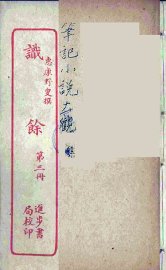 筆記小說大觀
惠康野叟撰
識餘
第二冊
進步書
局校印